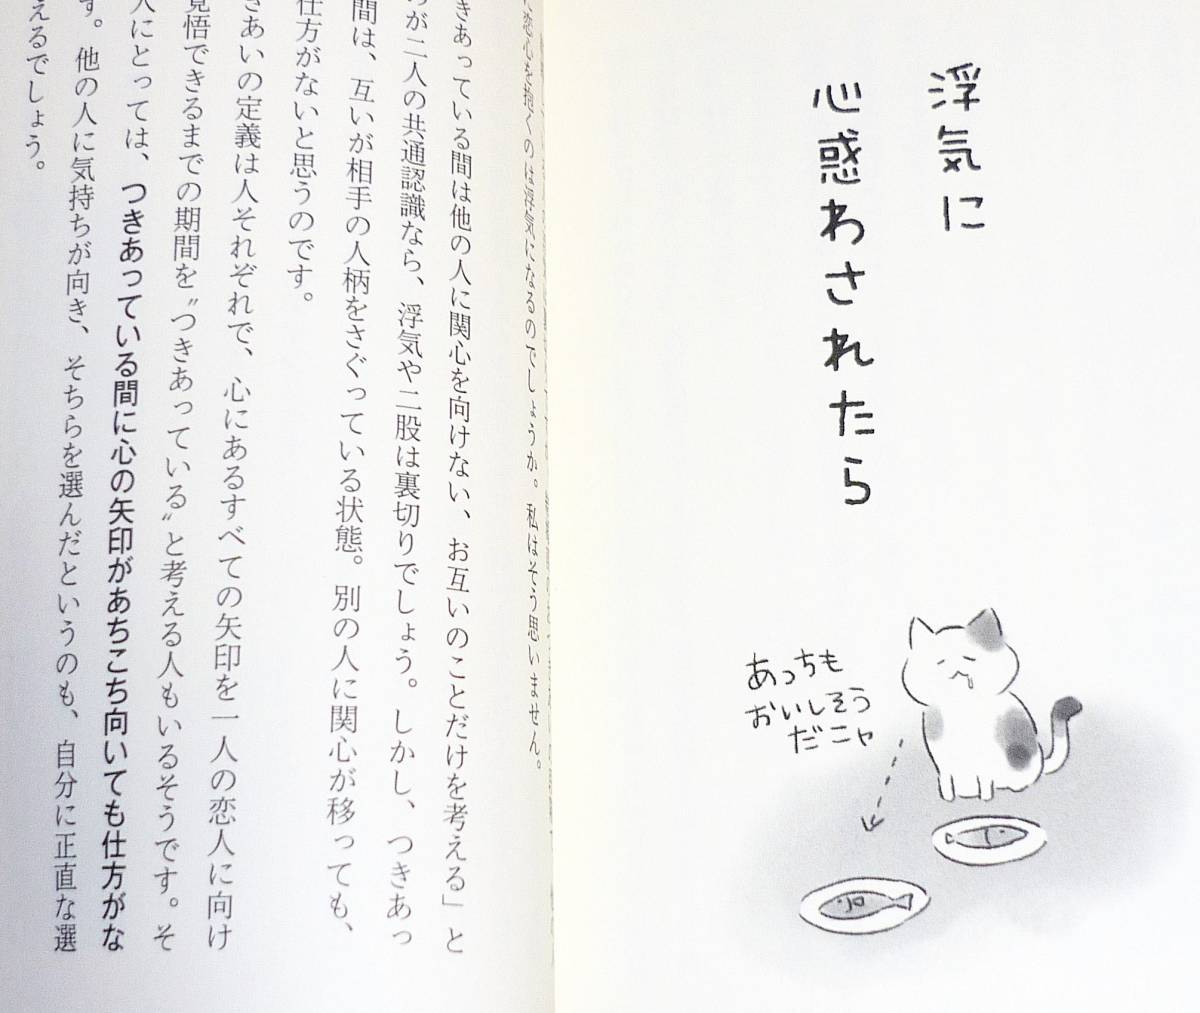 浮気に
心惑わされたら
あっちも
おいしそう
だニャ
に恋心を抱くのは浮気になるのでしょうか。私はそう思いません。
きあっている間は他の人に関心を向けない、お互いのことだけを考える」と
が二人の共通認識なら、浮気や二股は裏切りでしょう。しかし、つきあっ
間は、互いが相手の人柄をさぐっている状態。別の人に関心が移っても、
仕方がないと思うのです。
きあいの定義は人それぞれで、心にあるすべての矢印を一人の恋人に向け
覚悟できるまでの期間を〝つきあっている〟と考える人もいるそうです。そ
人にとっては、つきあっている間に心の矢印があちこち向いても仕方がな
す。他の人に気持ちが向き、そちらを選んだというのも、自分に正直な選
えるでしょう。